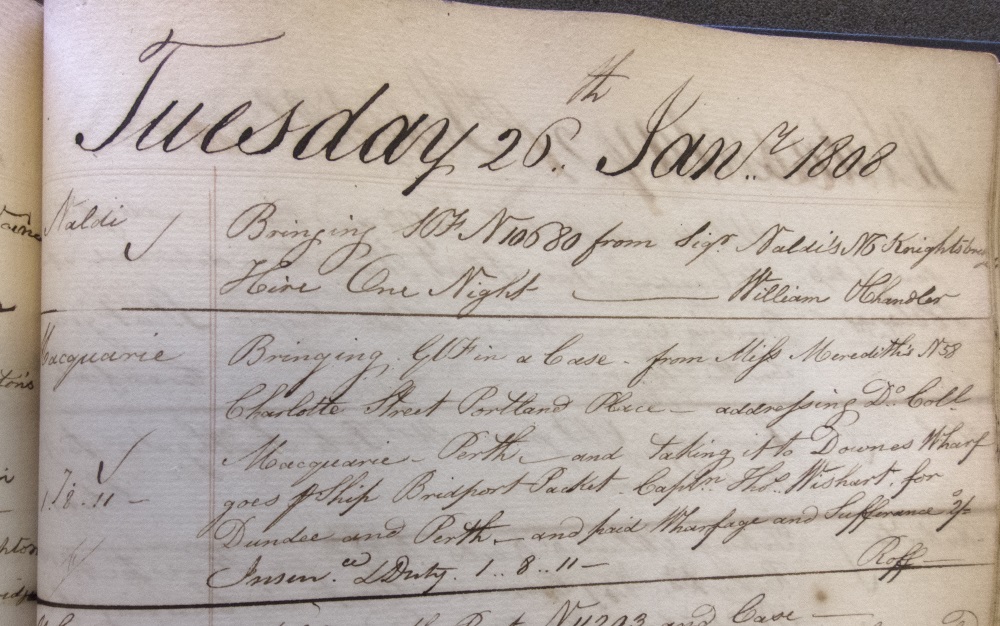 Tuesday 26th Jany 1808
Naldi ✓ Bringing SF N10680 from Sigr Naldi's No Knightsbridge
Hire One Night — William Chandler
Macquarie Bringing GUF in a Case - from Miss Meredith's N58
Charlotte Street Portland Place — addressing Do Coll.
✓ Macquarie - Perth, - and taking it to Downes Wharf
1..8..11 - goes p Ship Bridport Packet. Captn Thos Wishart, for
Dundee and Perth, - and paid Wharfage and Sufferance 2/-
Insurce & Duty. 1..8..11 - Roff -
N11293 and Case -